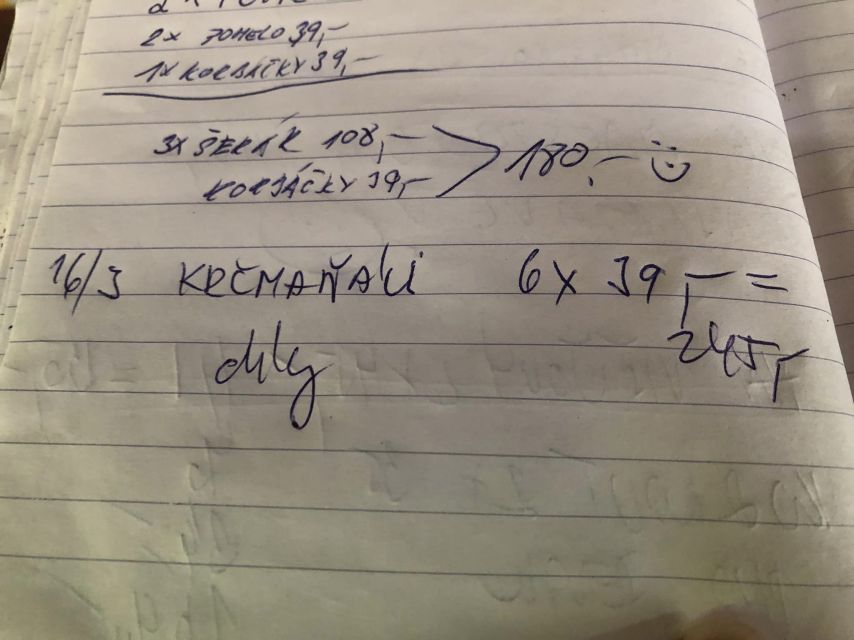 2x POMELO 39,-
1x KORBÁČKY 39,-
3x ŠERÁK 108,-
KORBÁČKY 39,- 180,-
16/3 KRČMAŇÁCI 6x 39,- =
dily 245,-